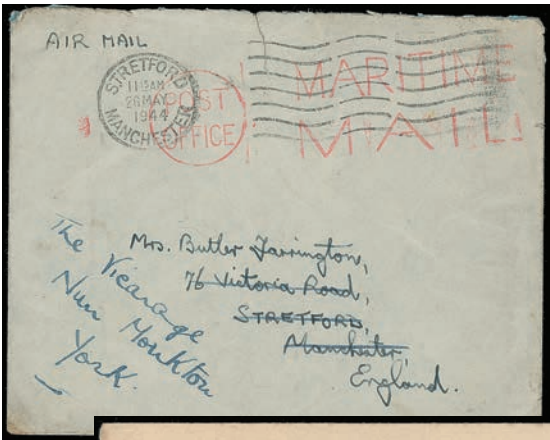 AIR MAIL
STRETFORD
11 15AM
26 MAY
1944
MANCHESTER
POST
OFFICE
MARITIME
MAIL
Mrs. Butler Farrington,
76 Victoria Road,
STRETFORD,
Manchester,
England.
The Vicarage
Nun Monkton
York.